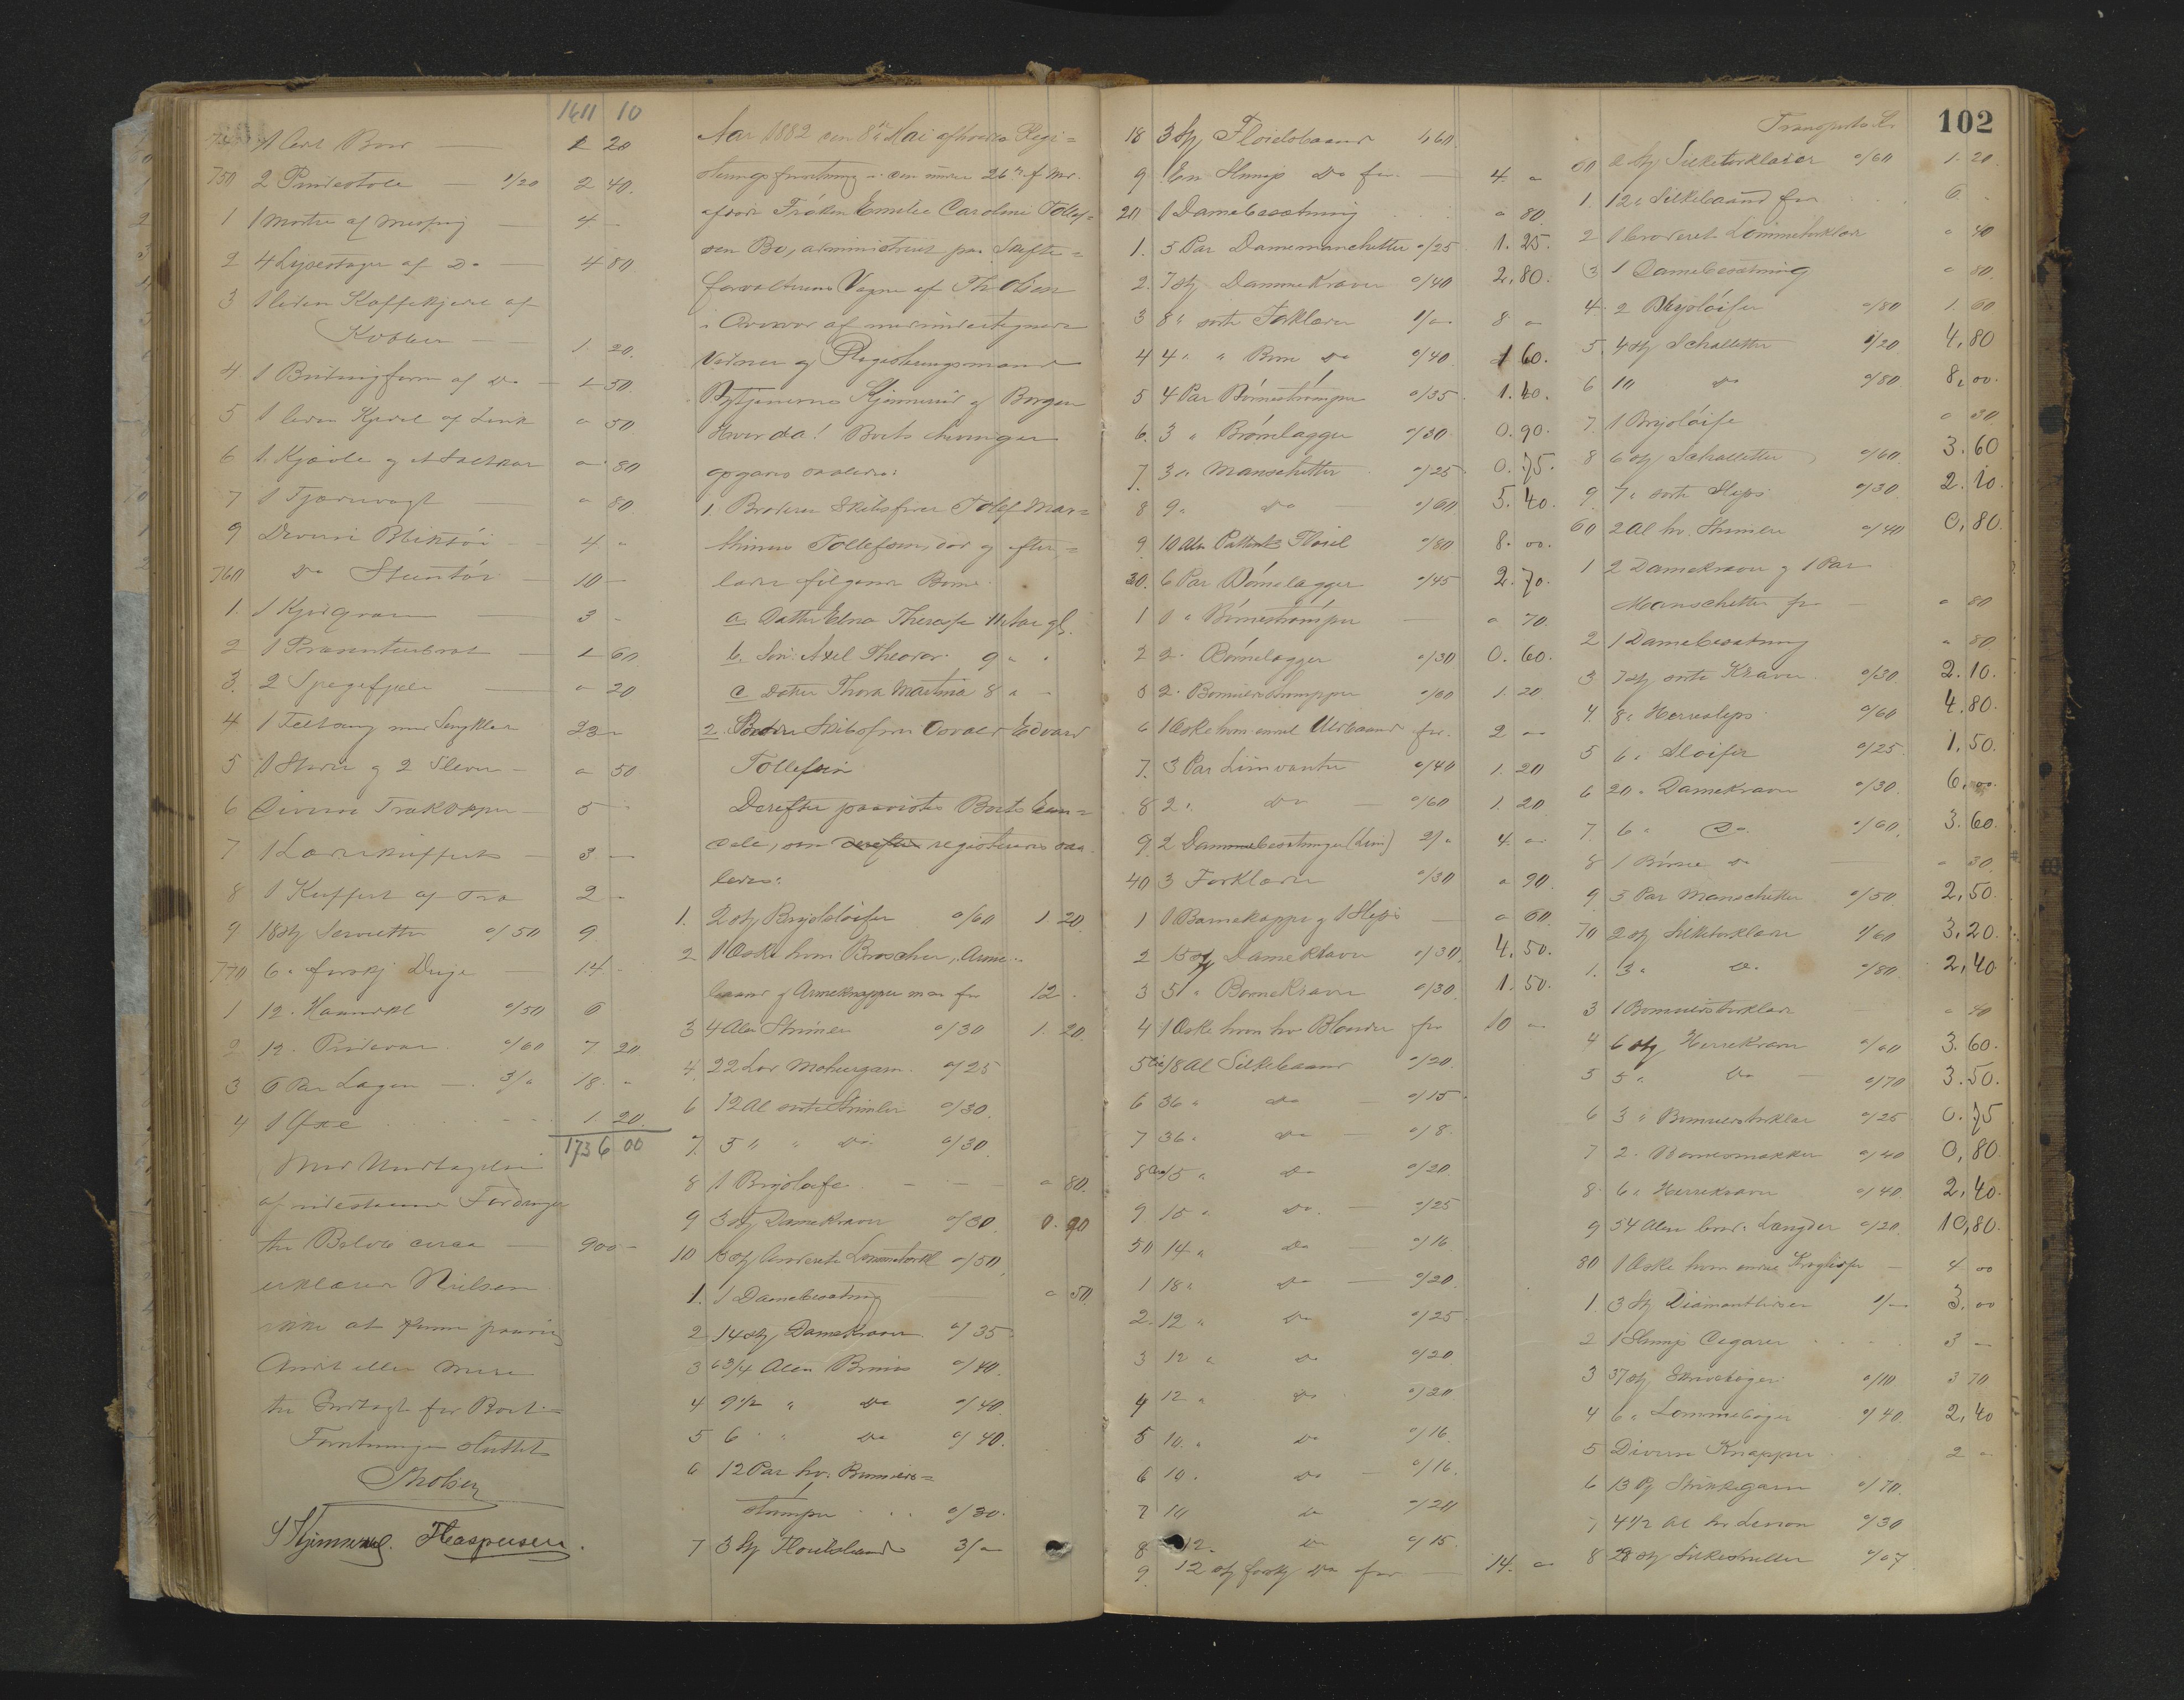 1611 10
1 20
750 2 Pudestole — 1/20 2 40.
1 1 Morter af Messing — 4 -
2 4 Lysestager af Do — 4 80
3 1 liden Kaffekjedel af
Kobber — 1. 20.
4 1 Budingform af Do — 1 50
5 1 liden Kjedel af Zink " 50
6 1 Kjævle og et Saltkar " 80
7 1 Tjærevægt — " 80
9 Diverse Bliktöi — 4 "
760 Do Stentöi — 10 -
1. 1 Kjödgran — 3 -
2 1 Præsenterbret — 1 60
3. 2 Spegefjæle — " 20
4 1 Feltseng med Sengklær 23 -
5 1 2 — " 50
6 Diverse Trækopper — 5 -
7 1 Læderkuffert — 3 —
8 1 Kuffert af Træ 2 -
9 18 Stk Servietter "/50 9
770 6 " forskj Duge — 14 -
1 12 . Haandkl "/50 6
2 12 . Pudevar. "/60 7 20
3 6 Par Lagen — 3/" 18. "
4 1 Öxe 1 20.
1736 00
Med Undtagelse
af udestaaende Fordringer
til Belöb circa — 900 -
erklærer Nielsen
ikke at kunne paavise
Andet eller Mere
til Indtægt for Boet. =
Forretningen sluttet
ThOlsen
S Kjennerud. HCaspersen.
Aar 1882 den 8de Mai afholdtes Regi=
streringsforretning i den under 26de f. Md.
afdöde Fröken Emilie Caroline Tollef=
sen Bo, administreret paa Skifte=
forvalterens Vegne af Th Olsen
i Overvær af medundertegnede
Vidner og Registreringsmænd
Bytjenerne Kjennerud og Borgen
Hvorda! Boets Arvinger
opgaves saaledes:
1. Broderen Skibsförer Tollef Mar=
thinius Tollefsen, död og efter=
lader fölgende Börn
a. Datter Elna Therese 11 Aar gl.
b. Sön: Axel Theodor 9 " "
c Datter Thora Martina 8 " -
2. Broder Skibsförer Oovald Edvard
Tollefsen
Derefter paavistes Boets Eien=
dele, som derefter registreredes saa
ledes:
1. 2 Stk Brystslöifer "/60 1. 20
2 1 Æske hvori Brocher, Arm=
baand og Armeknapper m m for 12 .
3 4 Alen Strimler "/30 1. 20.
4. 22 Lod Mohairgarn. "/25
6 12 Al sorte Strimler "/30.
7. 5 " " Do "/30
8 1 Brystslöife — " 80.
9 3 Stk Damekraver "/30 0. 90
10 13 Stk broderete Lommetörkl "/50
1. 1 Damebesætning — " 50.
2 14 Stk Damekraver "/35
3 6 3/4 Alen "/40.
4 9 1/2 " Do "/40.
5 6 " Do "/40.
6 12 Par hv. Bomulds=
strömper . . "/30.
7 3 Stk Floirlsbaand 3/"
18 3 Stk Floielsbaand 1,60
9 En Stump Do for — 4 "
20 1 Damebesætning " 80
1. 5 Par Damemanchetter "/25 1. 25.
2. 7 Stk Dammekraver "/40 2,80.
3 8 " sorte Forklæder 1/" 8 "
4 4 " " Börne Do "/40 1 60.
5 4 Par Börneströmper "/35 1. 40.
6. 3 " Börnelægger "/30 0. 90.
7. 3 " Manschetter "/25 0. 75.
8 9 " Do — "/60 5. 40.
9 10 Aln Patent Flöiel "/80 8. 00.
30. 6 Par Börnelægger "/45 2. 70.
1 1 " Börneströmper — " 70
2 2 " Börnelægger "/30 0. 60.
3 2 " Bomuldsströmper "/60 1. 20
6 1 Æske hvori endel Uldbaand for 2 "
7. 3 Par Linvanter "/40 1. 20
8 2 " Do — "/60 1. 20
9 2 Dammebesætninger (Lin) 2/" 4. "
40 3 Forklæder "/30 " 90.
1 1 Barnekappe og 1 Slips — " 60
2 15 Stk Damekraver "/30 4. 50.
3 5 " Barnekraver "/30 1. 50.
4 1 Æske hvori hv Blonder for 10 "
5 Ca 18 Al Silkebaand "/20
6 36 " Do — "/15
7 36 " Do — "/8.
8 Ca 5 " Do "/20
9 15 " Do. — "/25
50 14 " Do — "/16
1 18 " Do — "/20.
2. 12 " Do "/25
3 12 " Do "/20
4 12 " Do "/20
5 10 " Do "/16
6 10 " Do — "/16.
7 10 Do "/20
8 12 . Do "/15
9 12 Stk forskj Do for — 14. "
Transport Kr. 102
60 2 Stk Silketörklæder "/60 1. 20
1. 12 " Silkebaand for . . 6. -
2 1 broderet Lommetörklæde " 40
3 1 Damebesætning " 80.
4. 2 Brystslöifer "/80 1. 60
5. 4 Stk Schalletter 1/20 4,80
6 10 Do "/80 8,00.
7. 1 Brystslöife " 30
8 6 Stk Schalletter "/60 3.60
9 7 " sorte Slips "/30 2. 10.
60 2 Al hv. Strimler "/40 0,80.
1 2 Damekraver og 1 Par
Manschetter for — " 80
2 1 Damebesætning " 80
3 7 Stk sorte Kraver. "/30 2.10.
4. 8 " Herreslips "/60 4.80.
5 6 " Slöifer "/25 1,50.
6 20 " Damekraver "/30. 6,00
7. 6 " Do. "/60 3.60
8 1 Börne Do — " 30
9 5 Par Manschetter "/50 2,50
70 2 Stk Silketörklæder 1/60 3,20.
1. 3 " Do. "/80 2,40
3 1 Bomuldstörklæde " 40
4 6 Stk Herrekraver "/60 3.60.
5 5 " Do — "/70 3.50.
6 3 " Bomuldstörklær "/25 0.75
7 2 . "/40 0,80.
8 6 " Herrekraver "/40 2,40.
9 54 Alen brod. Længder "/20 10,80.
80 1 Æske hvori endel — 4 00
1. 3 Stk 1/" 3.00
2 1 Stump Cegarer . . 3 —
3 37 Stk Skrivebøger "/10 3 70
4 6 " Lommebøger "/40 2,40
5 Diverse Knapper 2 "
6 13 Strikkegarn "/70.
7 4 1/2 Al hv "/30
8 28 Stk "/07